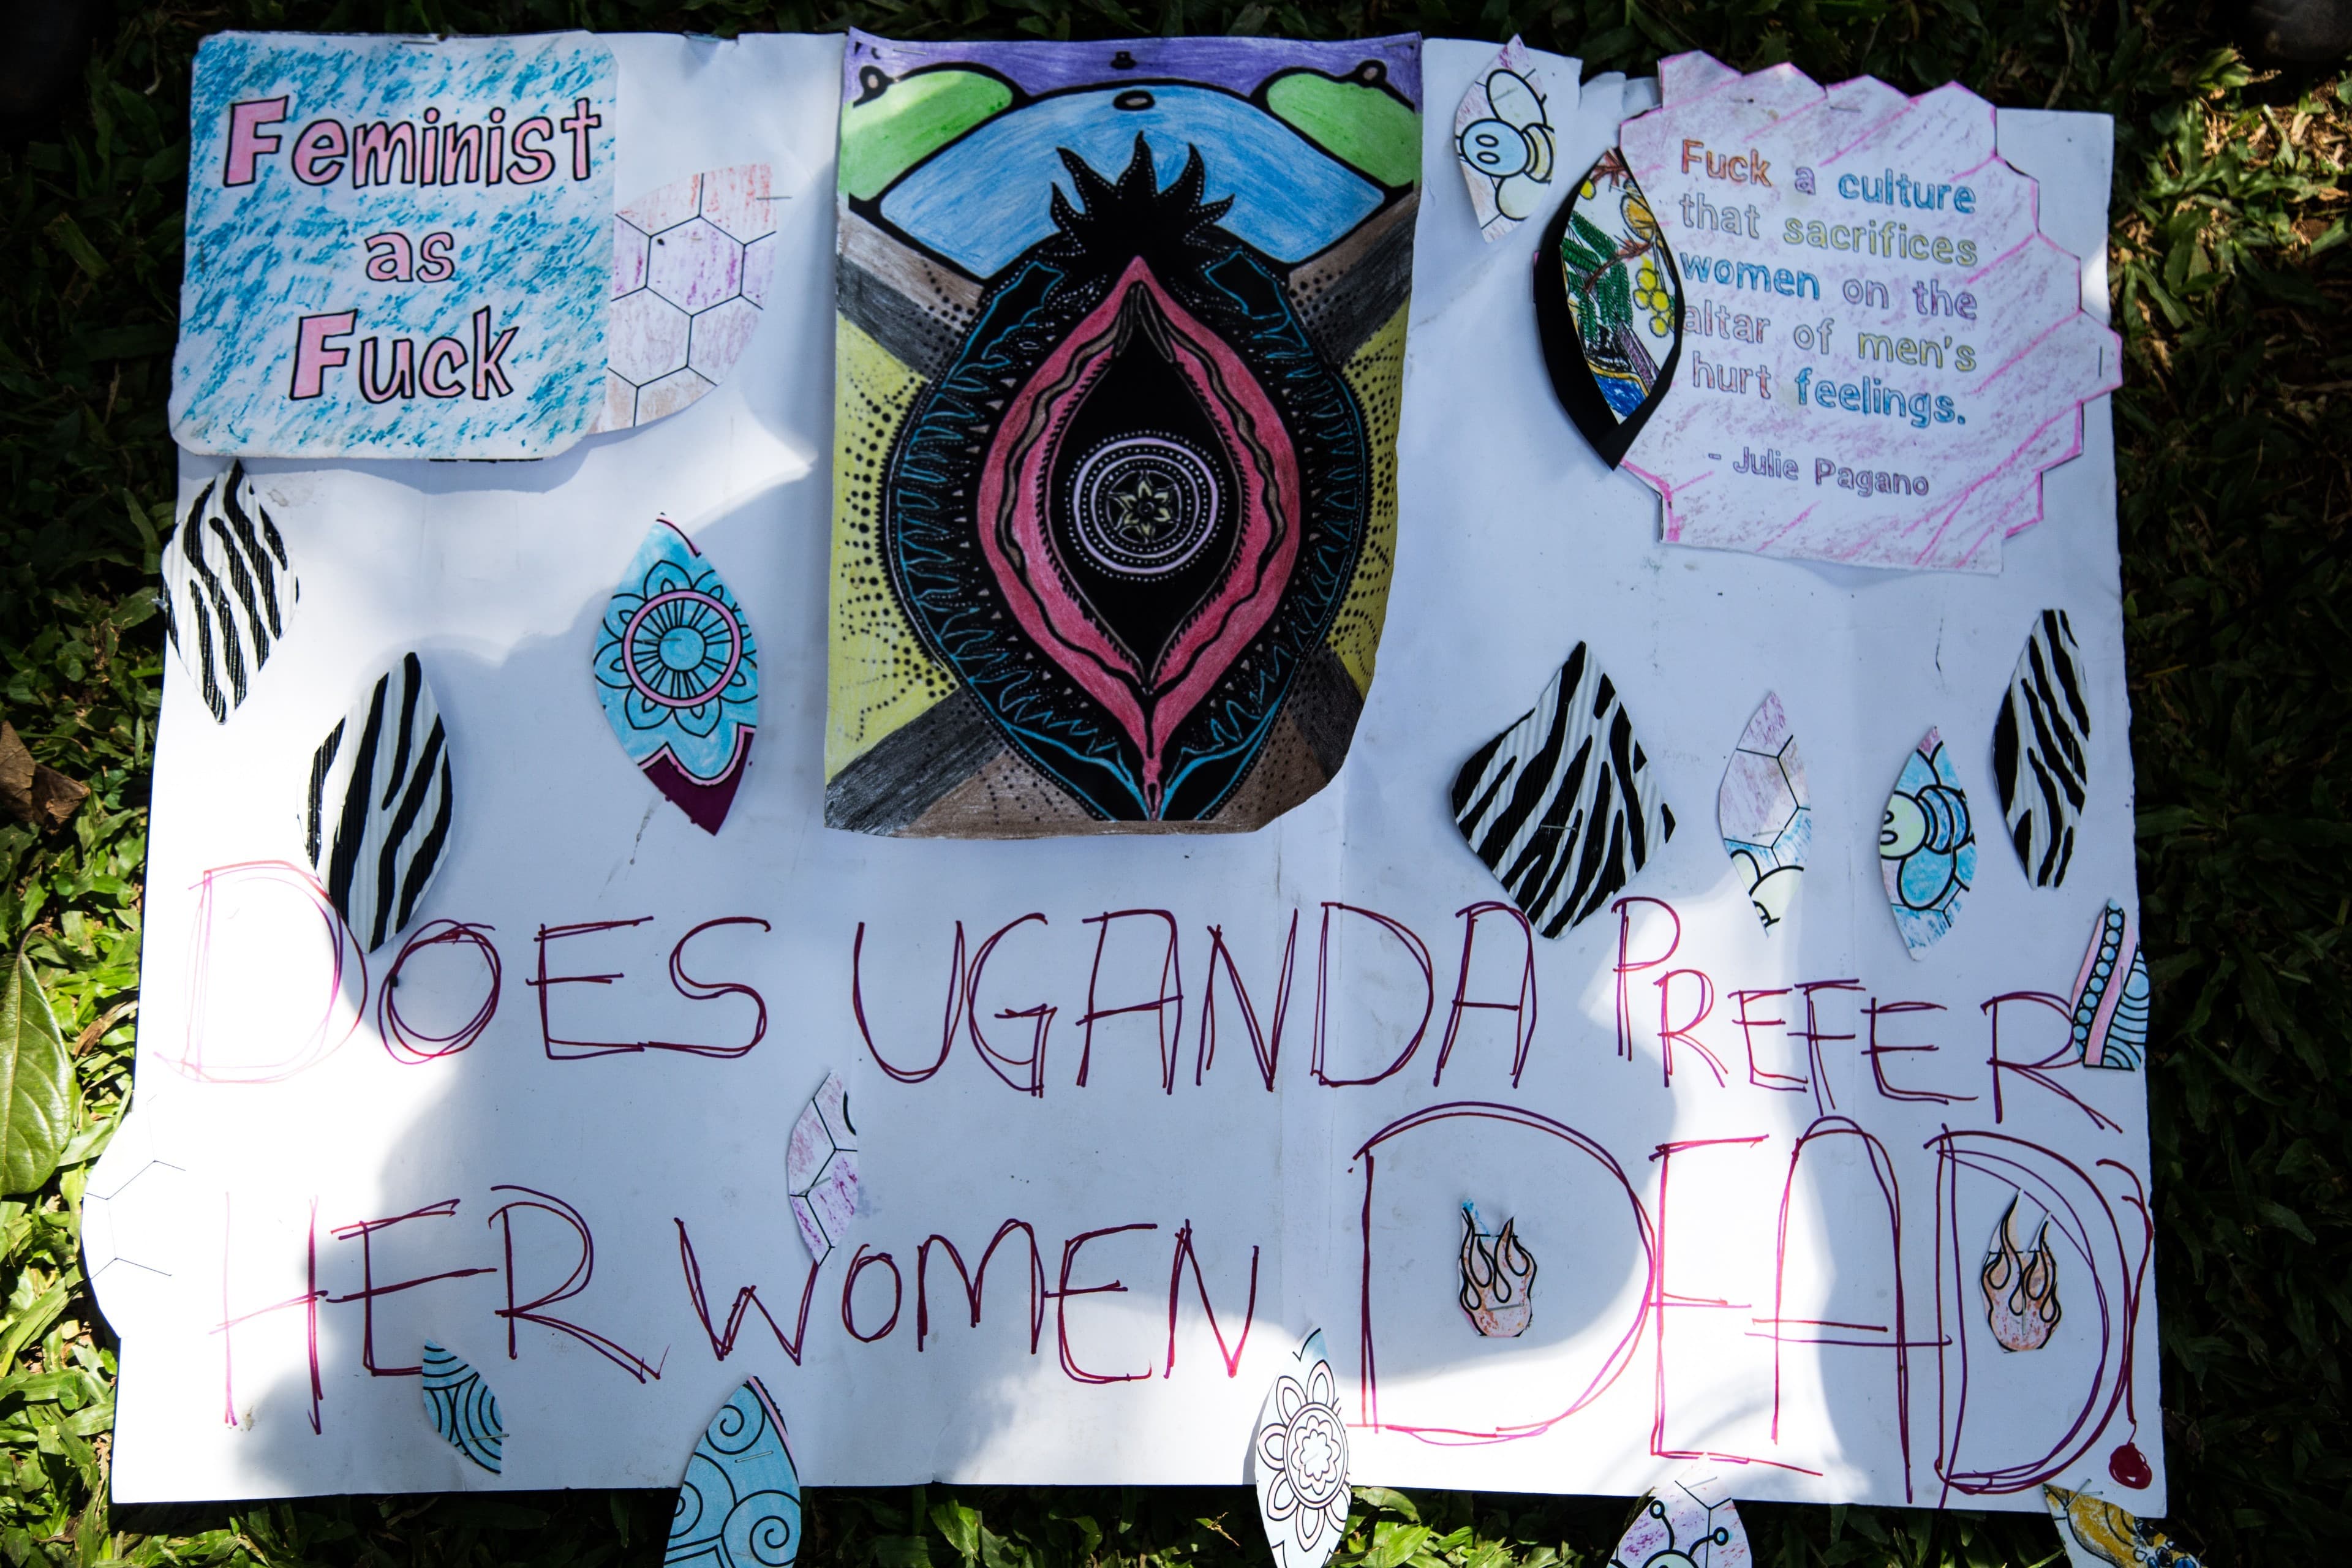 Feminist
as
Fuck
Fuck a culture
that sacrifices
women on the
altar of men's
hurt feelings.
- Julie Pagano
DOES UGANDA PREFER
HER WOMEN DEAD?